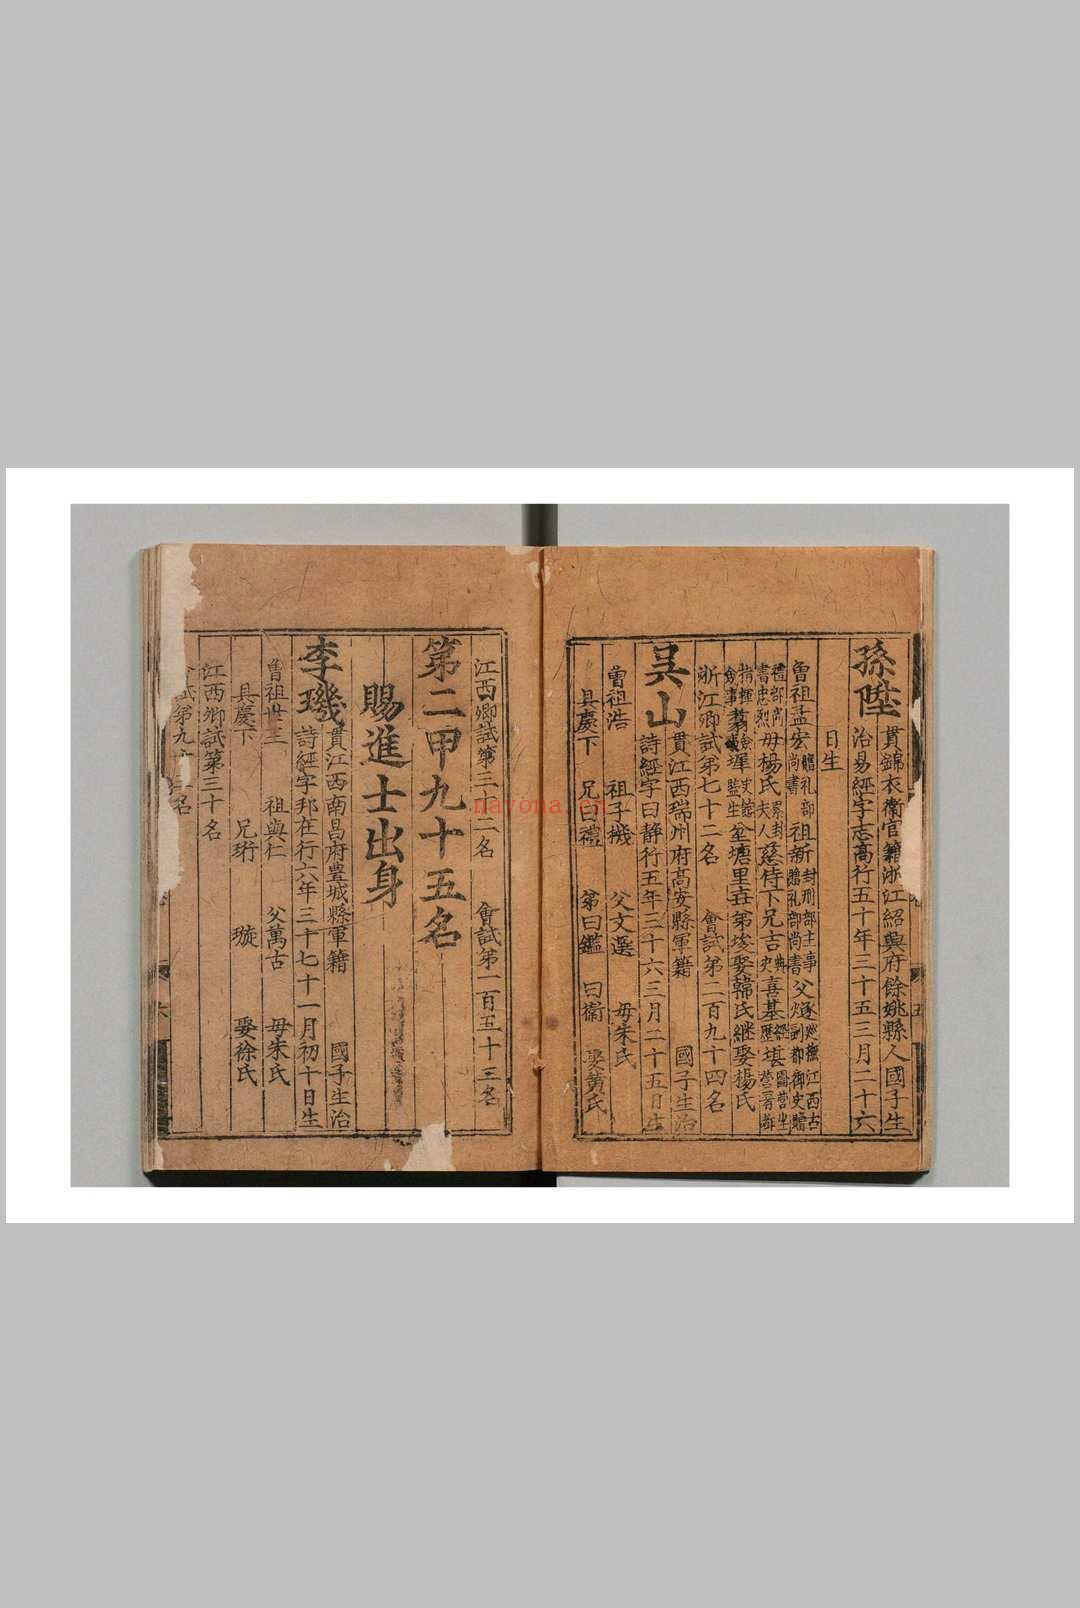 孫陞
貫錦衣衛官籍浙江紹興府餘姚縣人國子生
治易經字志高行五十年三十五三月二十六
日生
曾祖孟宏贈礼部尚書 祖新封刑部主事贈礼部尚書 父燧巡撫江西右副都御史贈
禮部尚書忠烈 母楊氏累封夫人 慈侍下 兄吉 喜 基 堪
浙江鄉試第七十二名 會試第二百九十四名
吴山
貫江西瑞州府高安縣軍籍 國子生治
詩經字曰静行五年三十六三月二十五日生
曾祖浩 祖子機 父文選 母朱氏
具慶下 兄曰禮 弟曰鑑 曰衛 娶黄氏
江西鄉試第三十二名 會試第一百五十三名
第二甲九十五名
賜進士出身
李璣
貫江西南昌府豊城縣軍籍 國子生治
詩經字邦在行六年三十七十一月初十日生
曾祖世 祖與仁 父萬古 母朱氏
具慶下 兄珩 璇 娶徐氏
江西鄉試第三十名
試第九十三名
nayona.cn